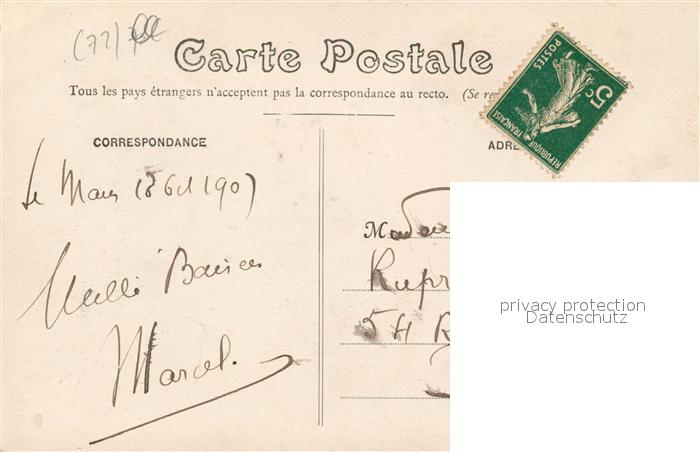 (72)
Carte Postale
Tous les pays étrangers n'acceptent pas la correspondance au recto. (Se re
5c
POSTES
REPUBLIQUE FRANÇAISE
CORRESPONDANCE
ADRE
Le Mans 18 Oct 1907
M
Mille Baisers
Rupr
54 R
Marcel.
privacy protection
Datenschutz